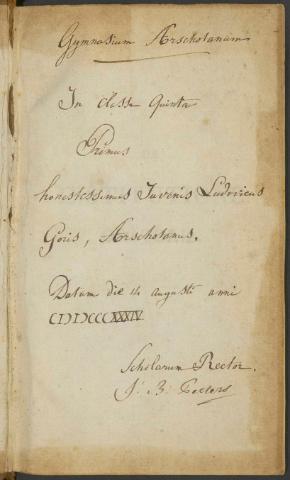 Gymnasium Arschotanum
In classe Quinta
Primus
honestissimus Juvenis Ludovicus
Goris, Arschotanus.
Datum die 14 augusti anni
CIƆIƆCCCXXXIV
Scholarum Rector.
J. B.